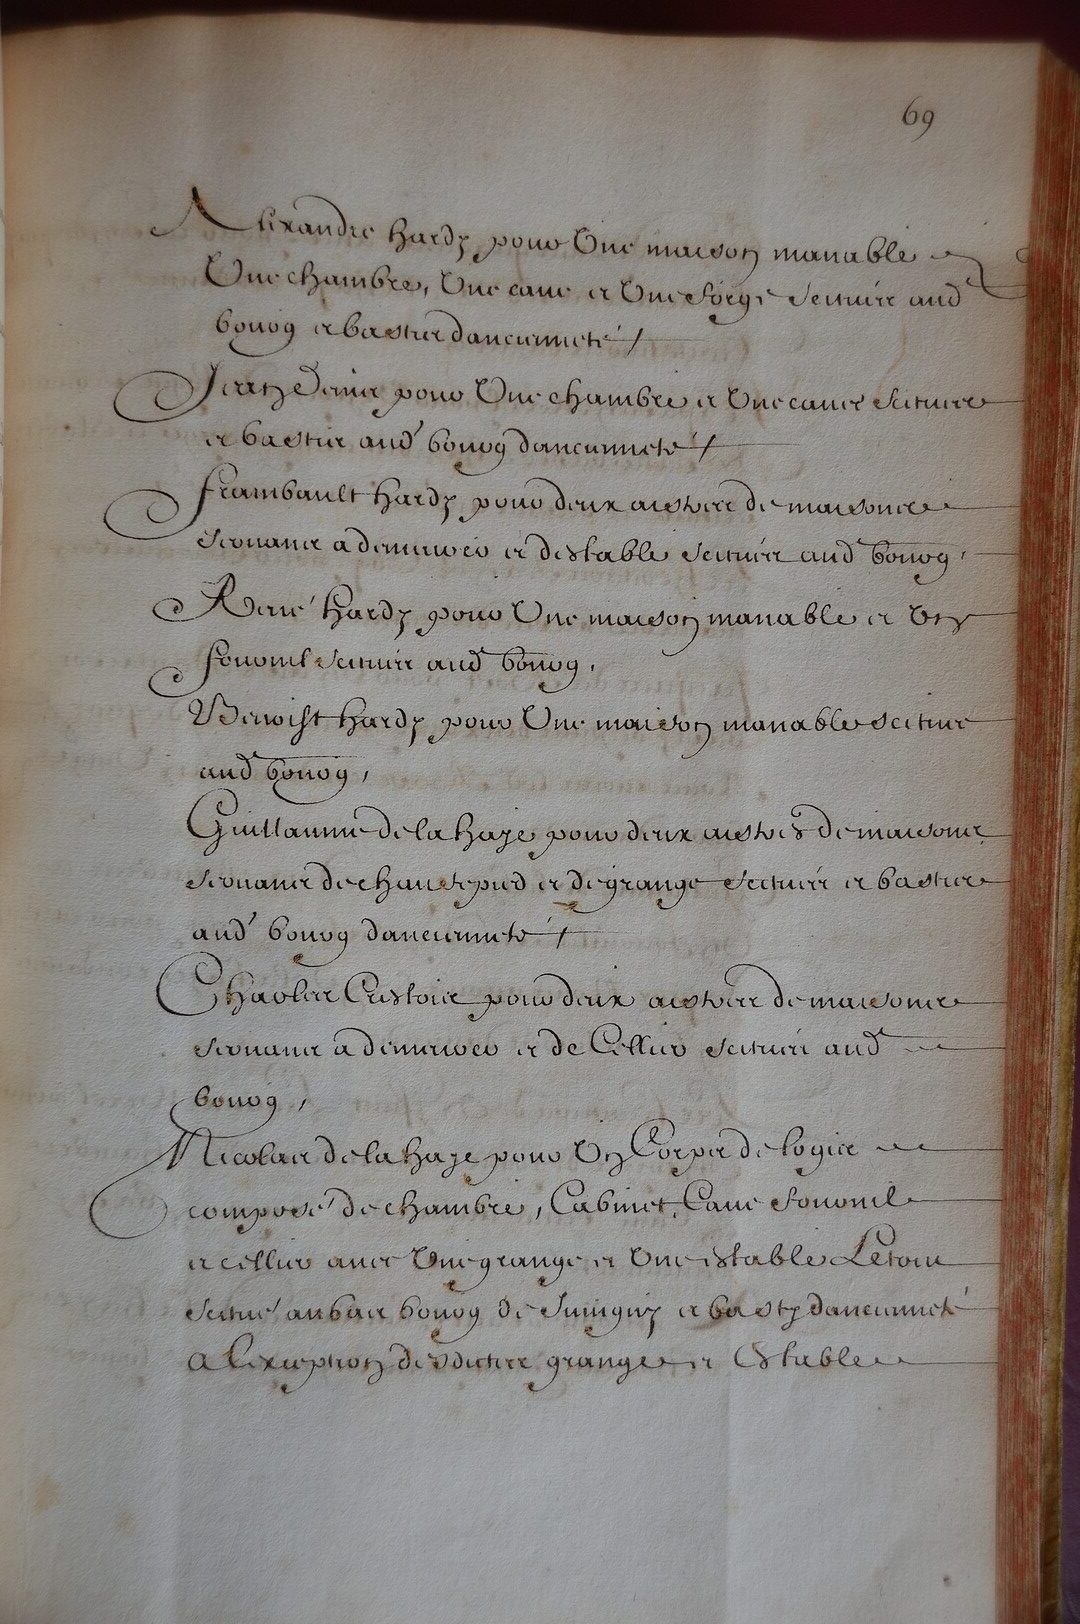 69
Alixandre hardy pour Une maison manable
Une chambre, Une cave et Une forge scituée aud
bourg et bastie dancienneté /
Jean pour Une chambre et Une cave scituees
et basties aud bourg dancienneté /
frambault hardy pour deux aistres de maisons
servans a demeurer et destable scitués aud bourg,
René hardy pour Une maison manable et Un
fournil scitués aud bourg,
Benoist hardy pour Une maison manable scituee
aud bourg,
Guillaume de la haye pour deux aistres de maisons
servans de chaufepied et de grange scitués et bastis
aud bourg dancienneté /
Charles pour deux aistres de maisons
servans a demeurer et de Cellier scitués aud
bourg,
Nicolas de la haye pour Un Corps de logis
composé de chambre, Cabinet, Cave fournil
et cellier avec Une grange et Une estable Le tout
scitué au bas bourg de et basty dancienneté
a Lexeption desdites grange et Estable